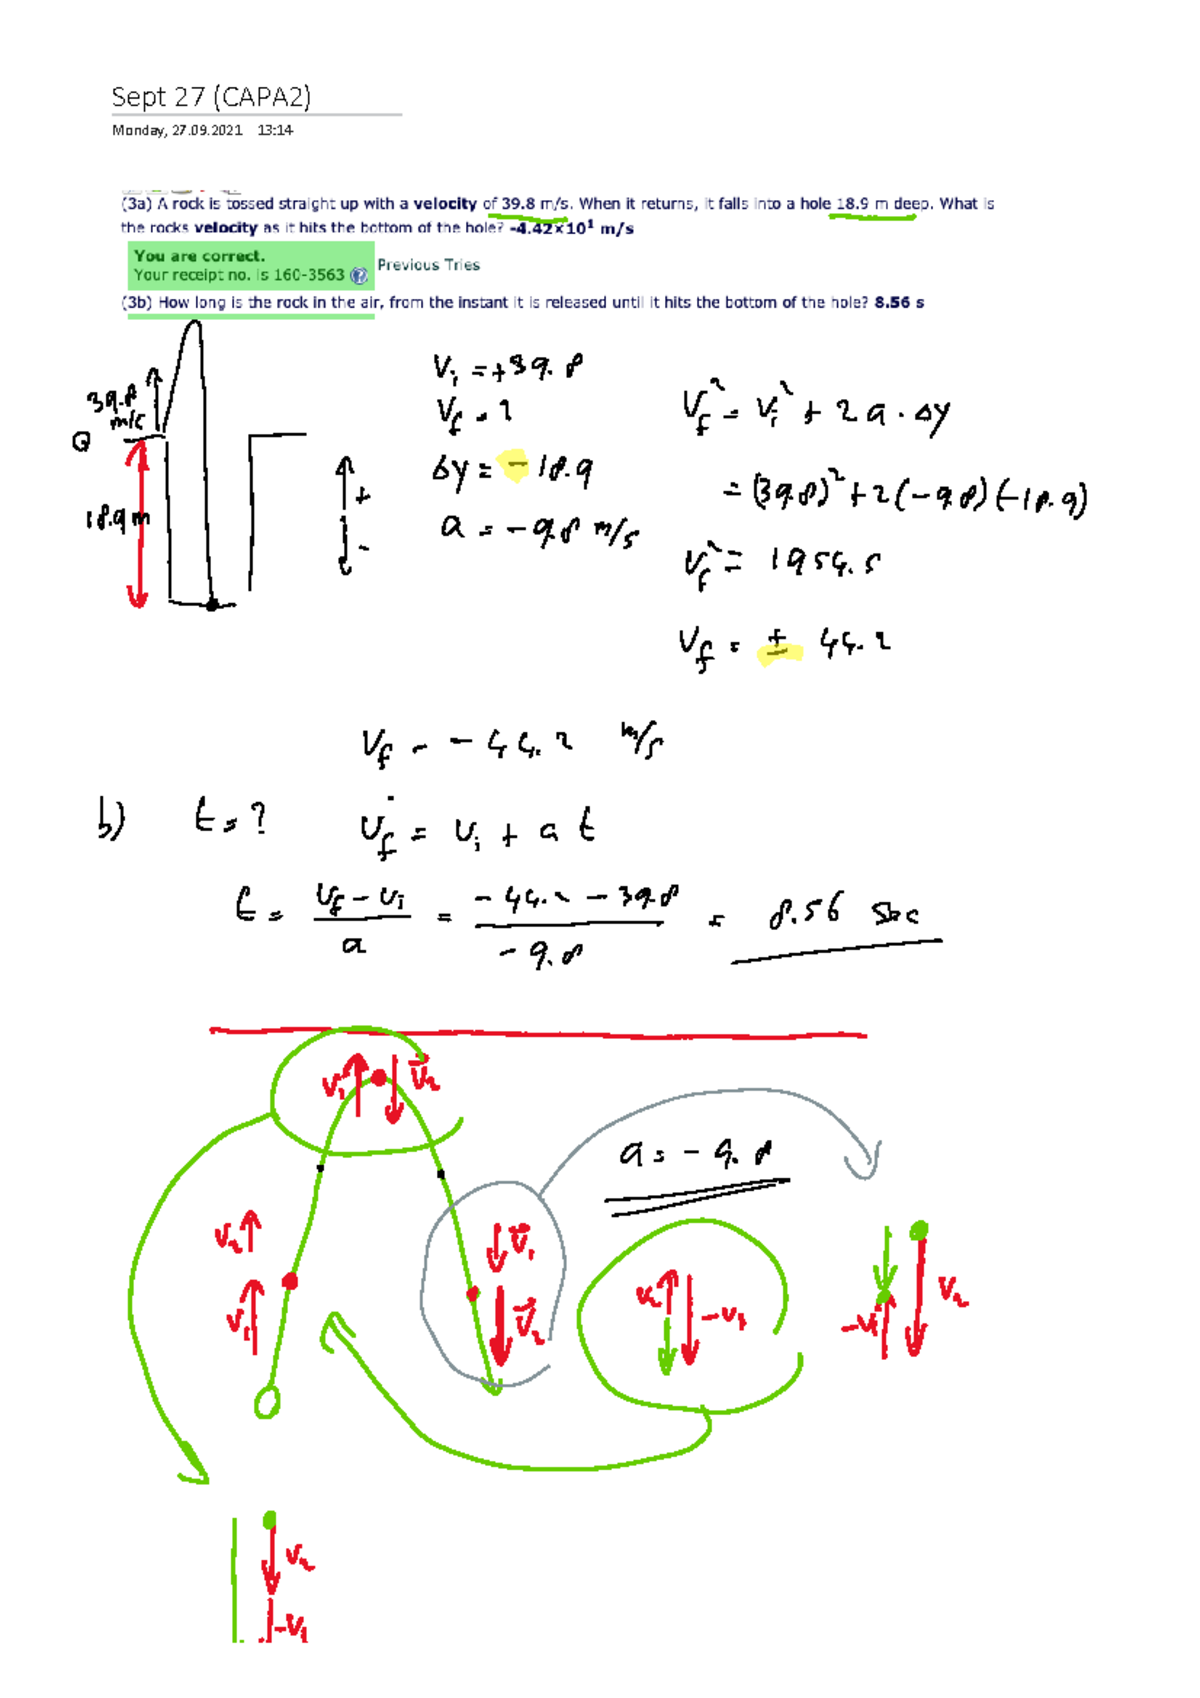 Sept 27 (CAPA2)
Monday, 27.09.2021 13:14
(3a) A rock is tossed straight up with a velocity of 39.8 m/s. When it returns, it falls into a hole 18.9 m deep. What is
the rocks velocity as it hits the bottom of the hole? -4.42×10¹ m/s
You are correct.
Your receipt no. is 160-3563 Previous Tries
(3b) How long is the rock in the air, from the instant it is released until it hits the bottom of the hole? 8.56 s
39.8 m/s
18.9 m
+
-
Vi = +39.8
Vf = ?
Δy = -18.9
a = -9.8 m/s
Vf² = Vi² + 2a·Δy
= (39.8)² + 2(-9.8)(-18.9)
Vf² = 1954.5
Vf = ± 44.2
Vf = -44.2 m/s
b) t = ? Vf = Vi + a t
t = (Vf - Vi)/a = (-44.2 - 39.8)/-9.8 = 8.56 sec
V₁ V⃗₂
a = -9.8
V₂
V₁
V⃗₁
V⃗₂
V₂ -V₁
-V₁ V₂
V₂
-V₁